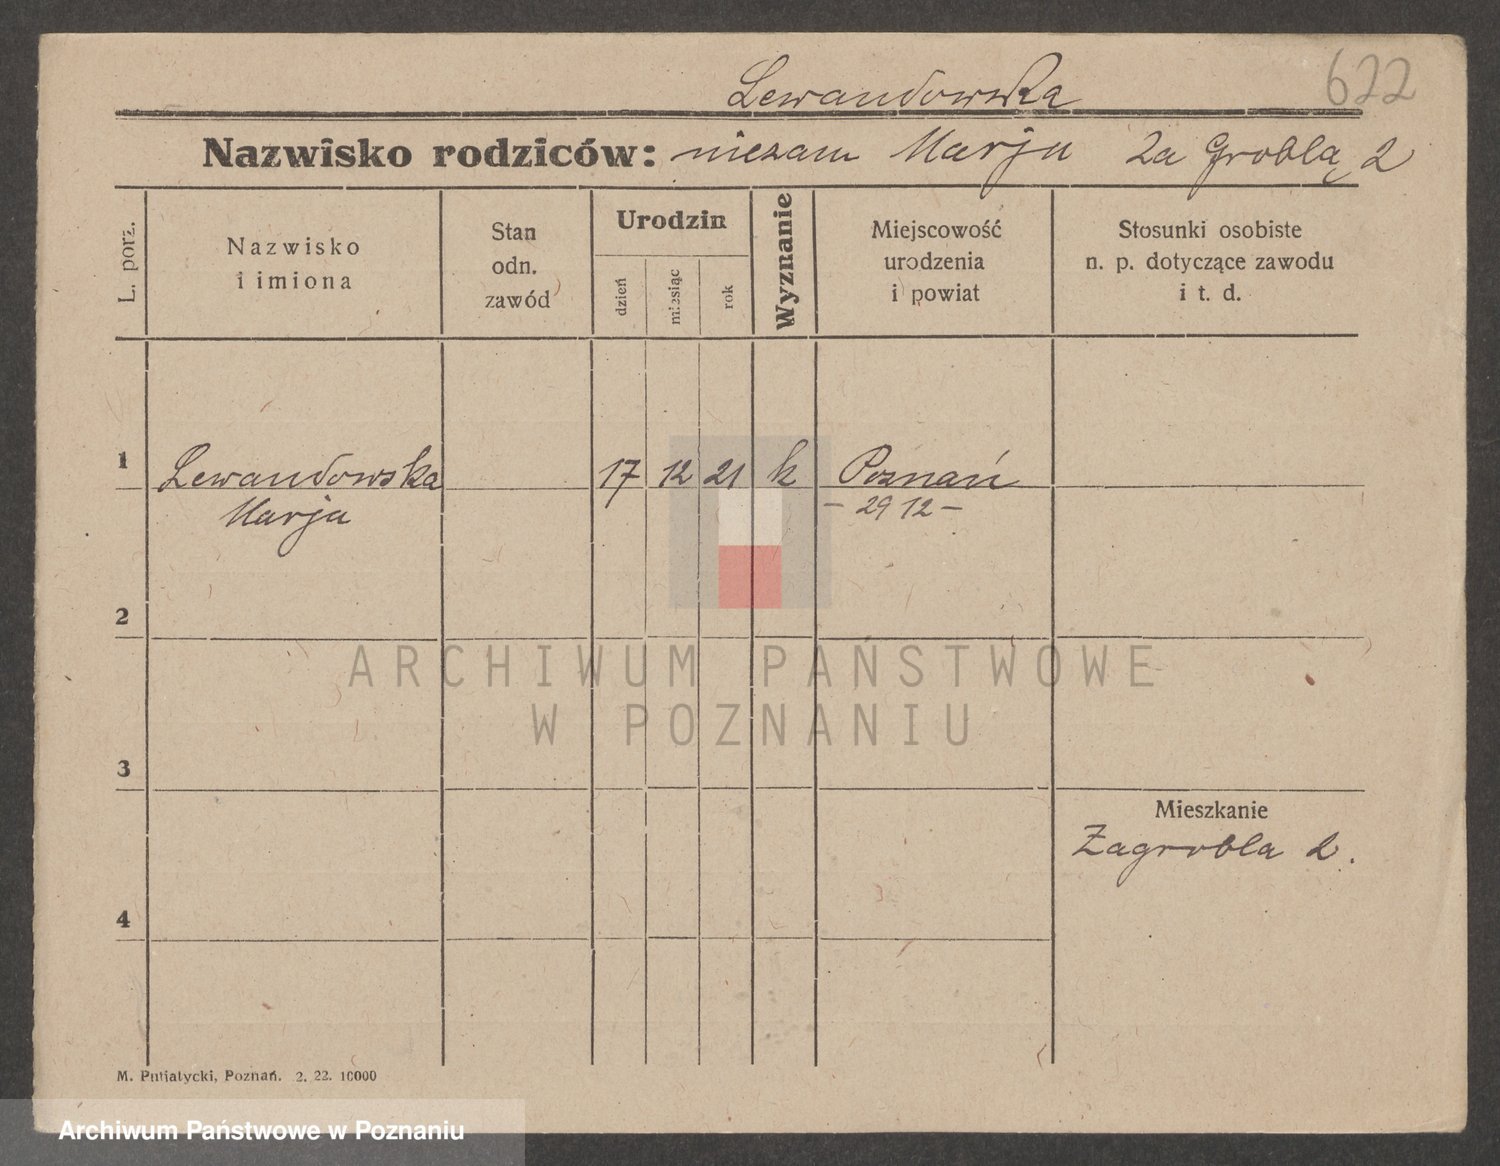 Lewandowska
622
Nazwisko rodziców: niezam Marja Za Groblą 2
L. porz.
Nazwisko
i imiona
Stan
odn.
zawód
Urodzin
dzień
miesiąc
rok
Wyznanie
Miejscowość
urodzenia
i powiat
Stosunki osobiste
n. p. dotyczące zawodu
i t. d.
1
Lewandowska 17 12 21 k Poznań
Marja - 29 12 -
2
ARCHIWUM PAŃSTWOWE
W POZNANIU
3
Mieszkanie
Zagrobla 2.
4
M. Putiatycki, Poznań. 2. 22. 10000
Archiwum Państwowe w Poznaniu